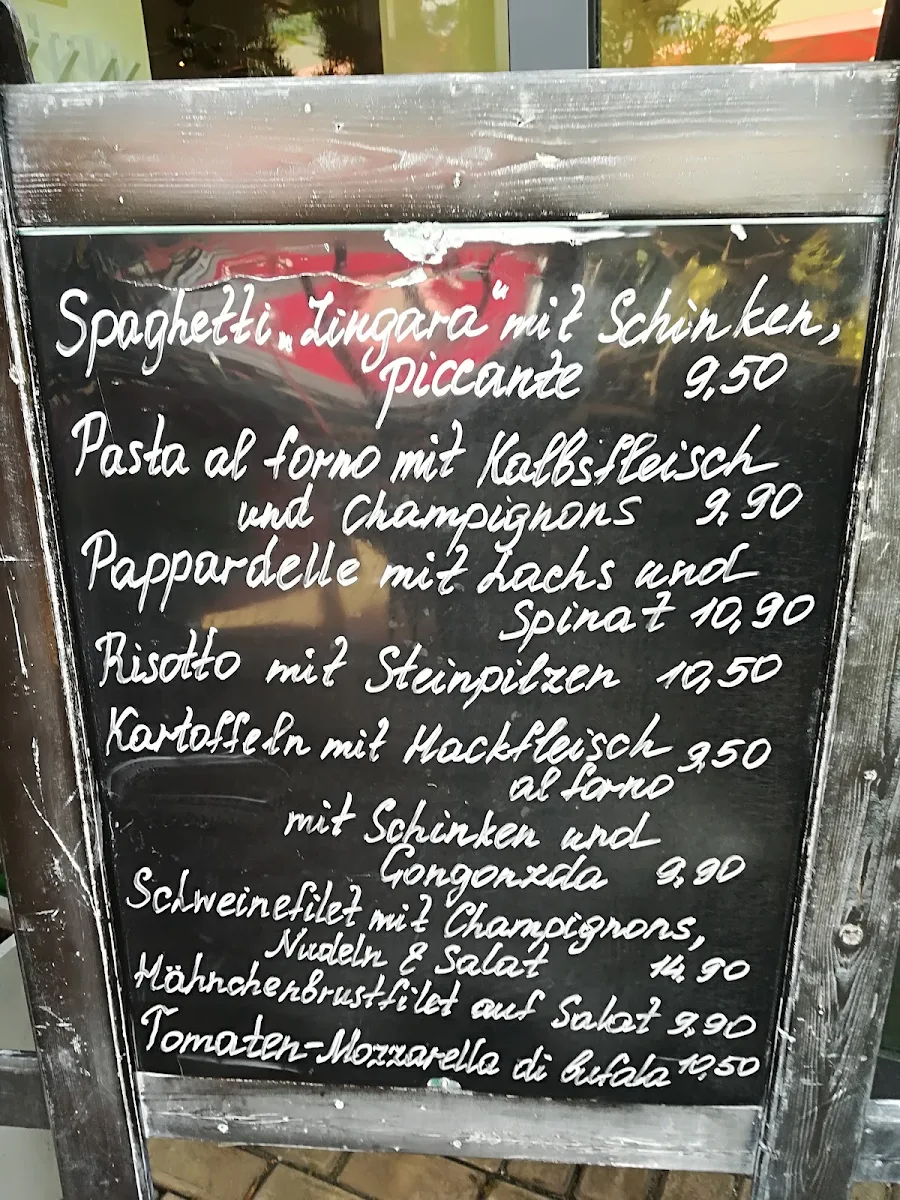 Spaghetti „Zingara“ mit Schinken,
piccante 9,50
Pasta al forno mit Kalbsfleisch
und Champignons 9,90
Pappardelle mit Lachs und
Spinat 10,90
Risotto mit Steinpilzen 10,50
Kartoffeln mit Hackfleisch 9,50
al forno
mit Schinken und
Gongonzola 9,90
Schweinefilet mit Champignons,
Nudeln & Salat 14,90
Hähnchenbrustfilet auf Salat 9,90
Tomaten-Mozzarella di bufala 10,50